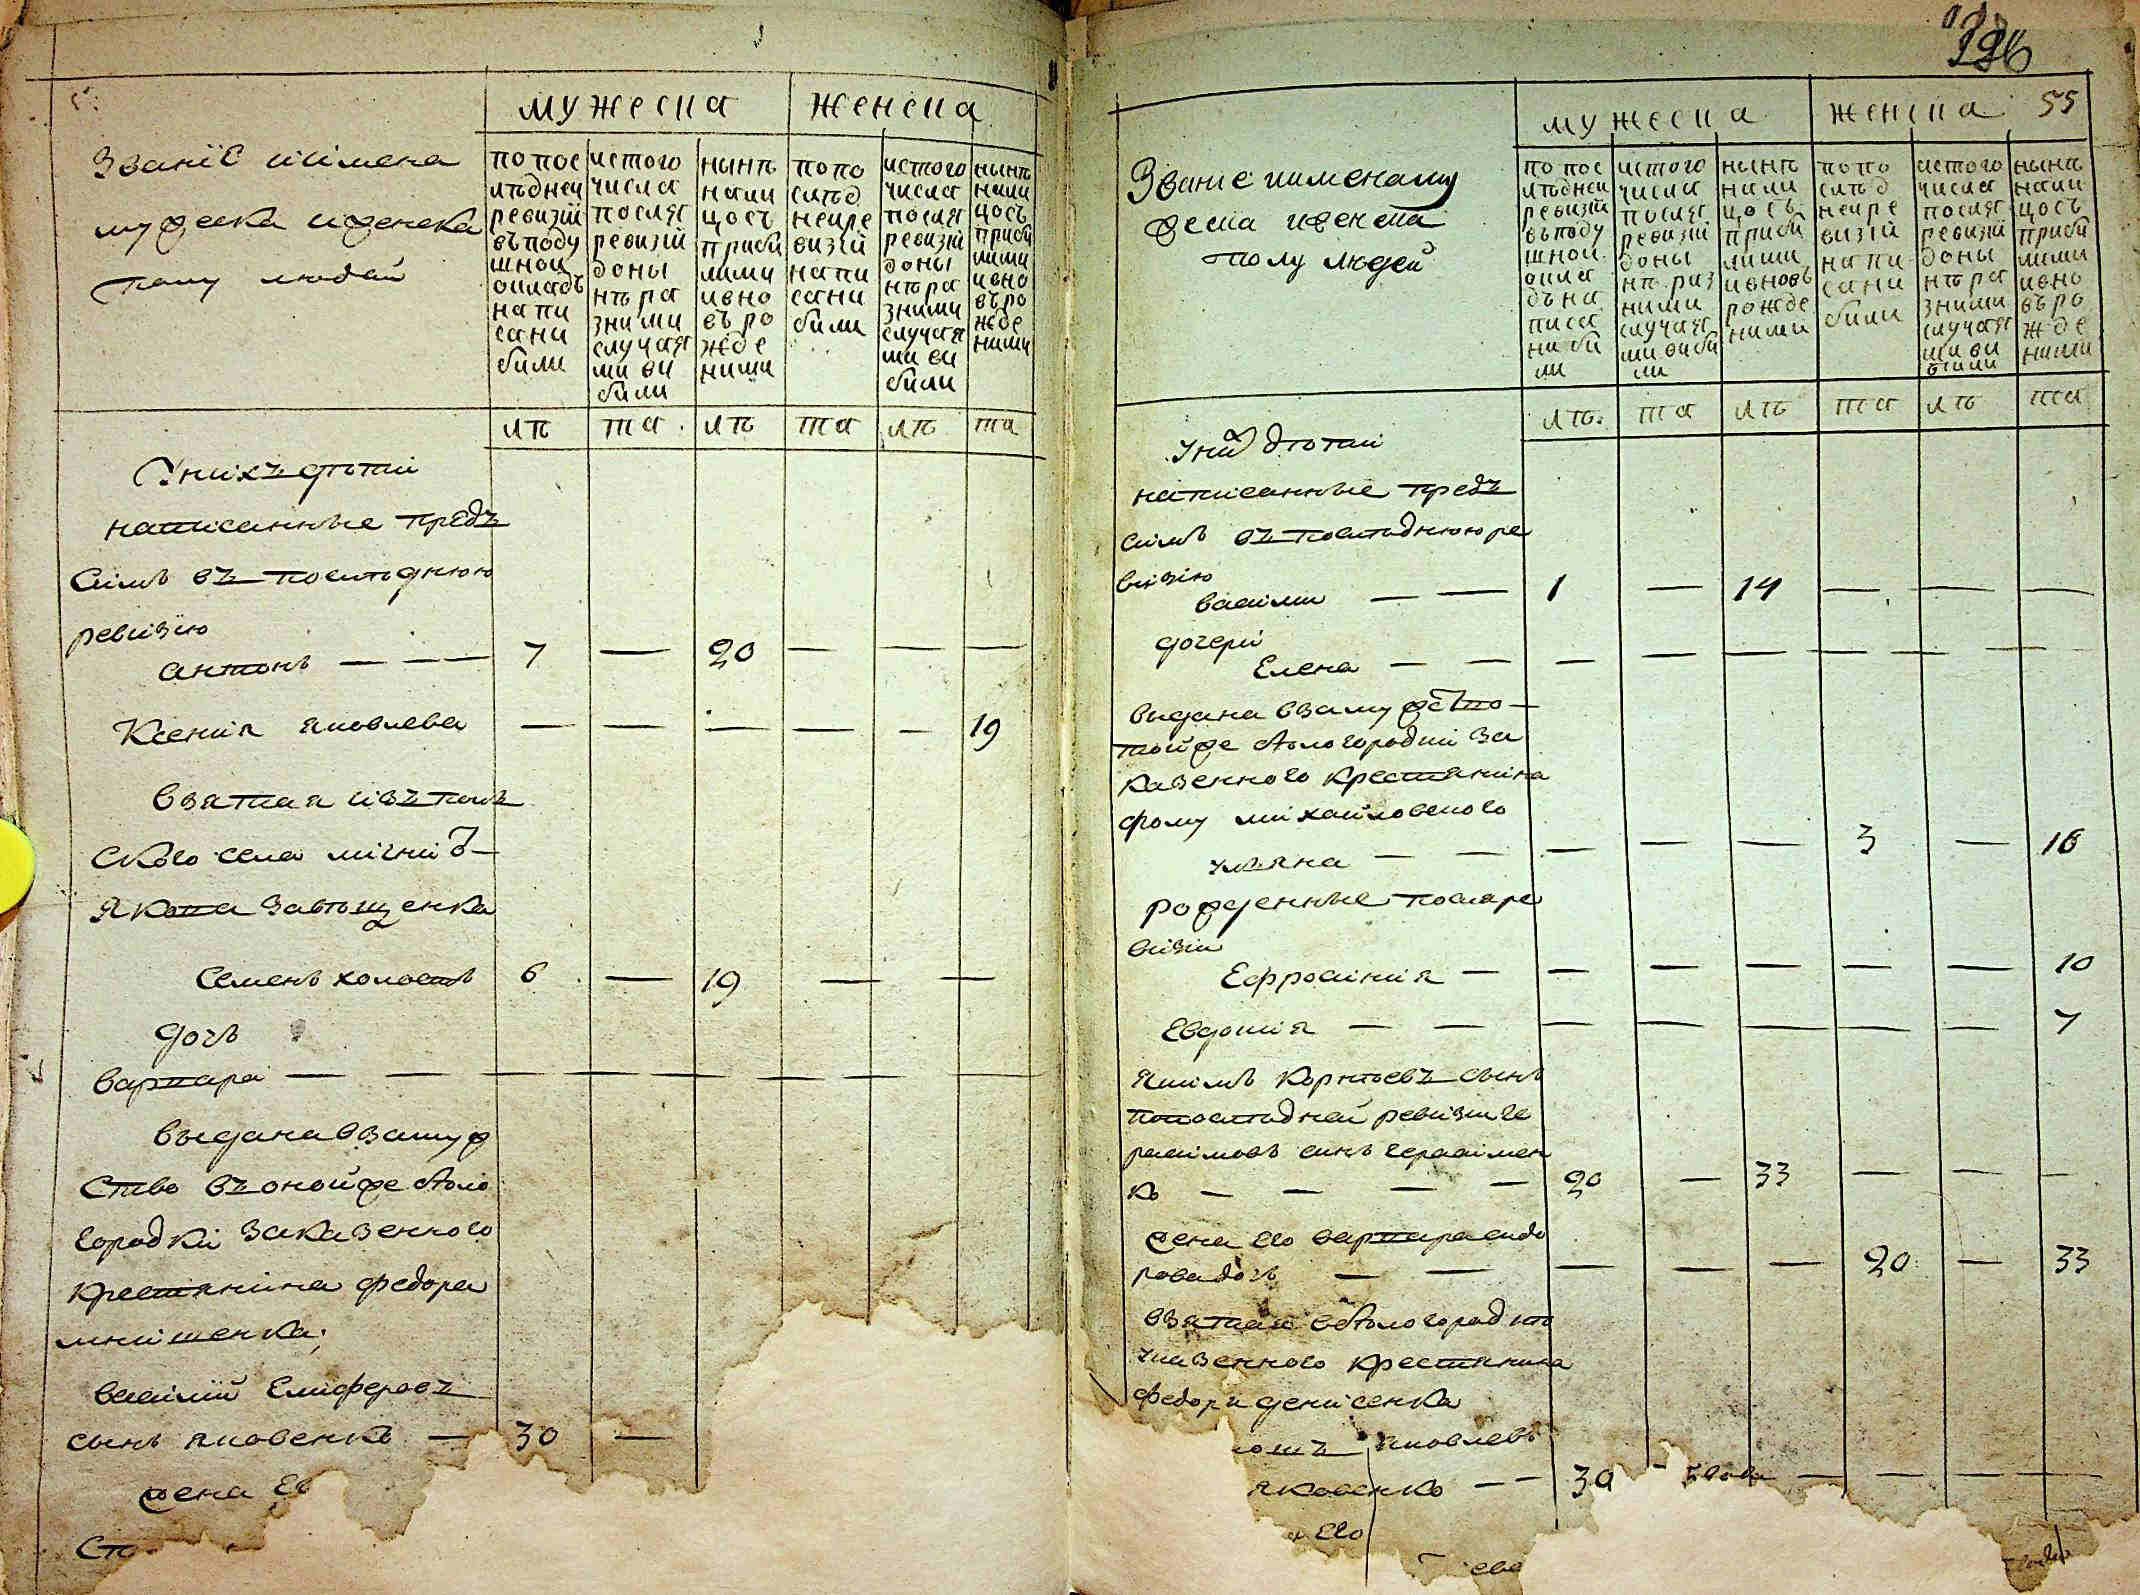 Званіе иімена
мужеска иженска
полу людей
мужеска
женска
попос
лѣдней
ревизій
въподу
шной
окладъ
напи
сани
били
истого
числа
послѣ
ревизій
доны
нѣра
зними
случая
ми ви
били
нынѣ
нали
цосъ
приби
лими
ивно
въро
жде
ними
попо
слѣд
нейре
визій
напи
сани
били
истого
числа
послѣ
ревизій
доны
нѣра
зними
случая
ми ви
били
нынѣ
нали
цосъ
приби
лими
ивно
въро
жде
ними
лѣ
та
лѣ
та
лѣ
та
Унихъ дѣтей
написанные предъ
симъ въ последнюю
ревизію
антонъ — — — 7 — 20 — — —
Ксенія яковлева — — — — — 19
взятая изъ поль
ского села
Якова
Семенъ холостъ 6 — 19 — —
дочь
варвара — — — — — — — —
выдана взамуж
ство въ оной же бѣло
городки заказенного
крестянина федора
мнишенка;
василій Елиферовъ
сынъ яковенко — 30 —
жена Ев
196
55
Званіе иименаму
жеска иженска
полу людей
мужеска
женска
попос
лѣдней
ревизій
въподу
шной
окла
дъна
писа
ни би
ли
истого
числа
послѣ
ревизій
доны
нѣ раз
ними
случая
ми виби
ли
нынѣ
нали
цосъ
приби
лими
ивновъ
рожде
ними
попо
слѣд
нейре
визій
напи
сани
били
истого
числа
послѣ
ревизій
доны
нѣра
зними
случая
ми ви
били
нынѣ
нали
цосъ
приби
лими
ивно
въро
жде
ними
лѣ
та
лѣ
та
лѣ
та
Унихъ дѣтей
написанные предъ
симъ въ последнюю ре
визію
василий — — 1 — 14 — — —
дочери
Елена — — — — — — — —
выдана взамужство
тойже бѣлогородки за
казенного крестянина
фому михайловского
уляна — — — — — 3 — 16
рожденные послѣре
визіи
Ефросинія — — — — — — 10
Евдокия — — — — — — — 7
якимъ Корнѣевъ сынъ
попоследней ревизіи ге
расимовъ синъ герасимен
ко — — — — 20 — 33 — — —
жена его варвара сидо
рова дочь — — — — — 20 — 33
взятая вбѣлогородки
указенного крестянина
федора денисенка
яковлевъ
яковенко — — 30 — — — — —
Его